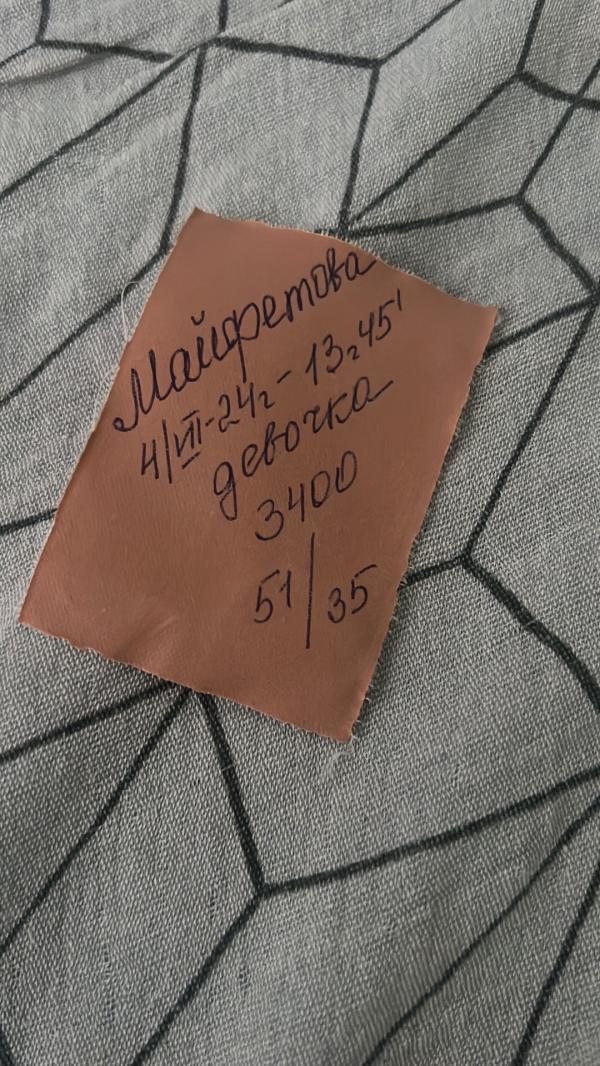 Майфетова
4/VII-24г-13г45'
девочка
3400
51/35